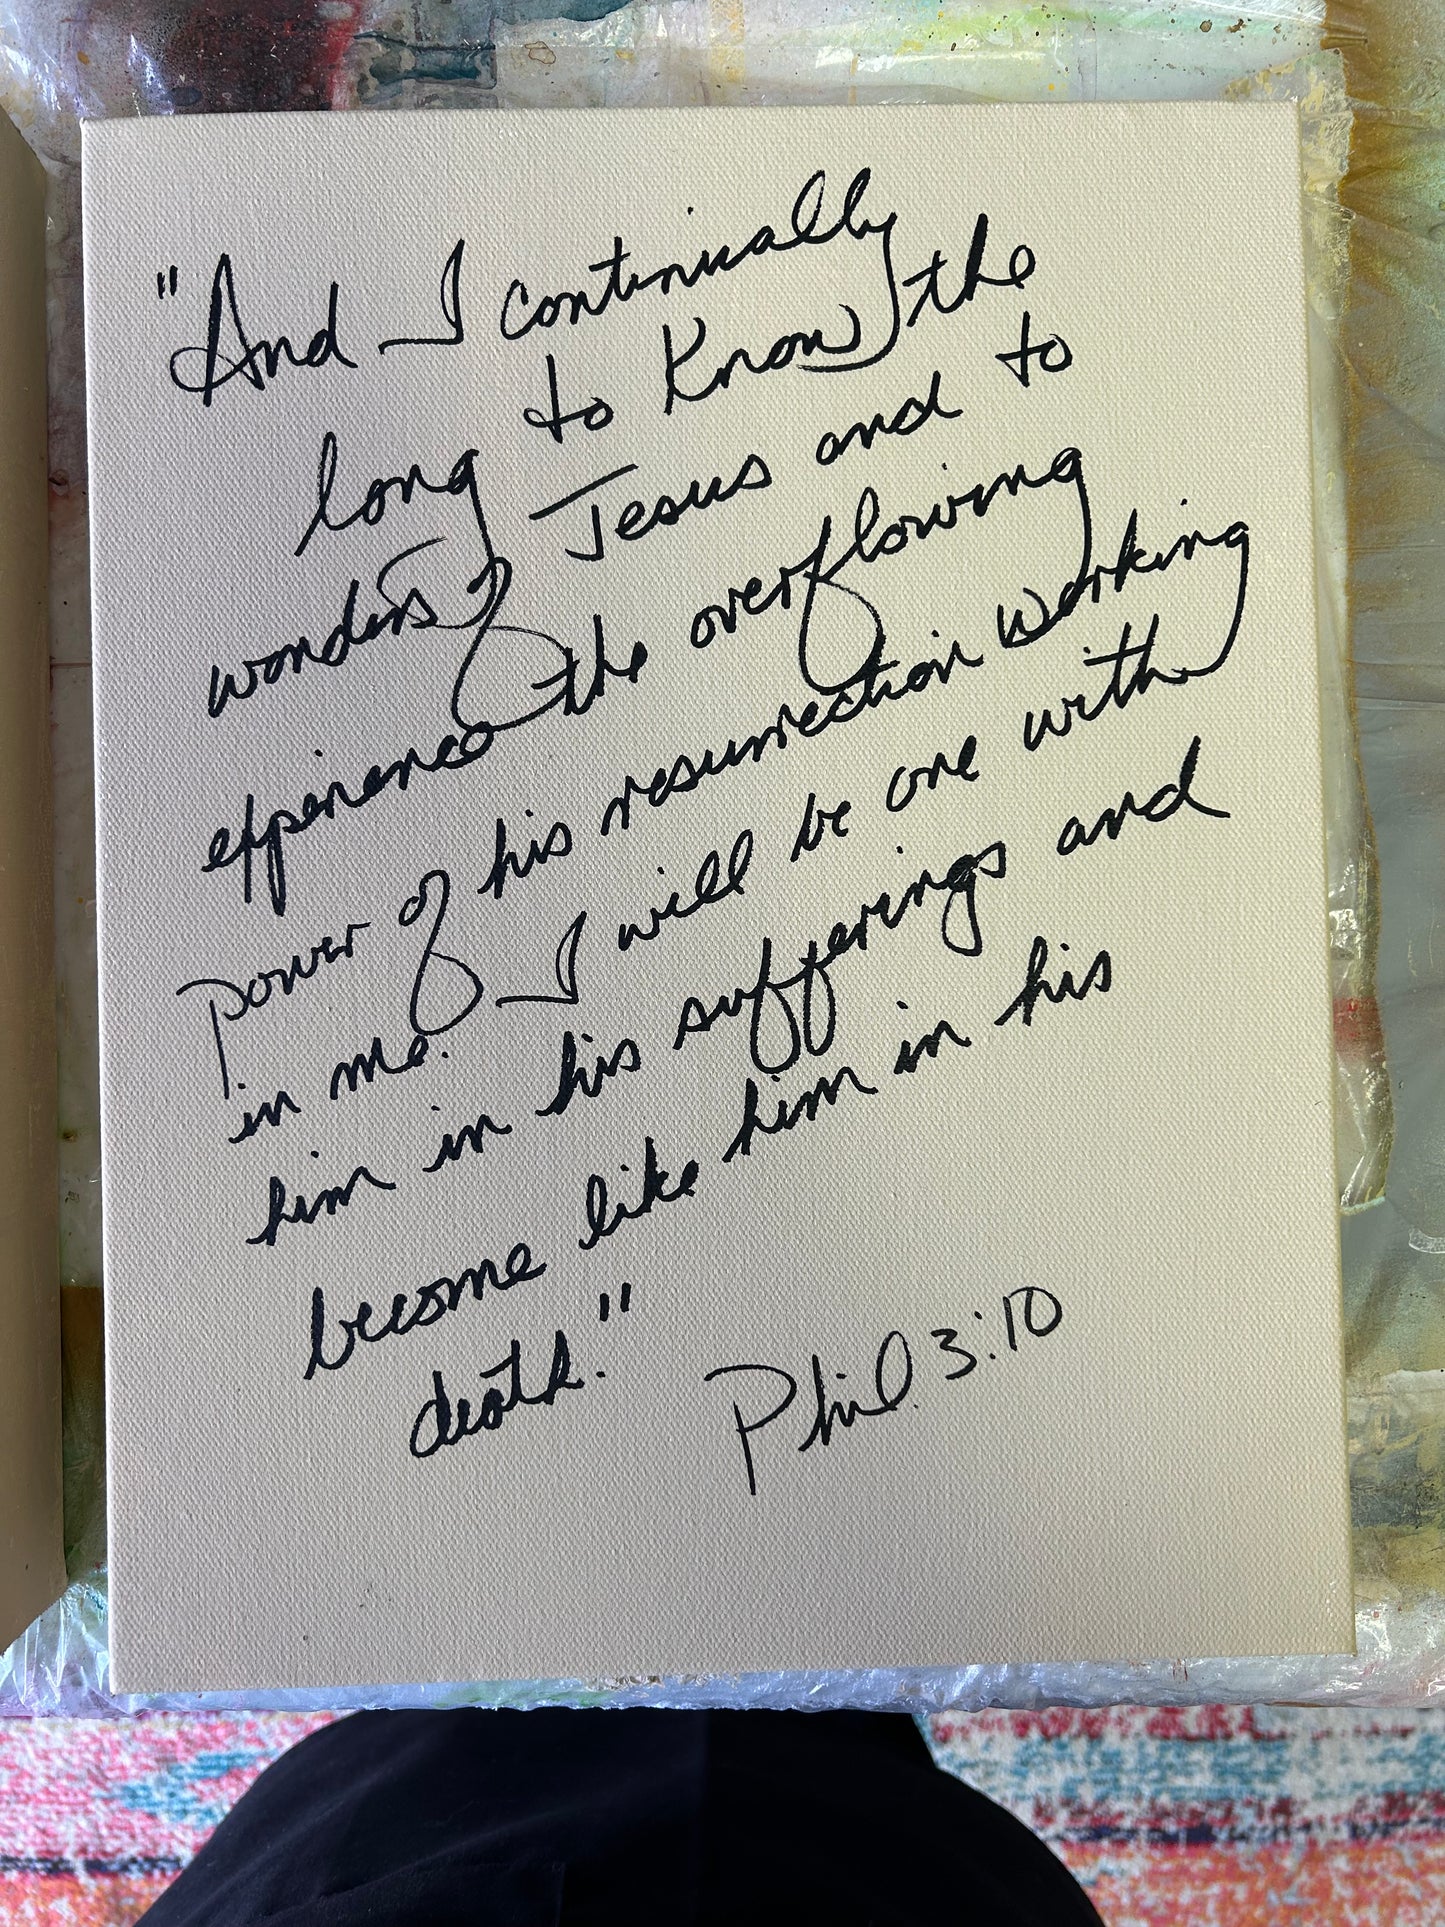 "And I continually
long to Know the
wonders of Jesus and to
experience the overflowing
power of his resurrection working
in me. I will be one with
him in his sufferings and
become like him in his
death."
Phil. 3:10